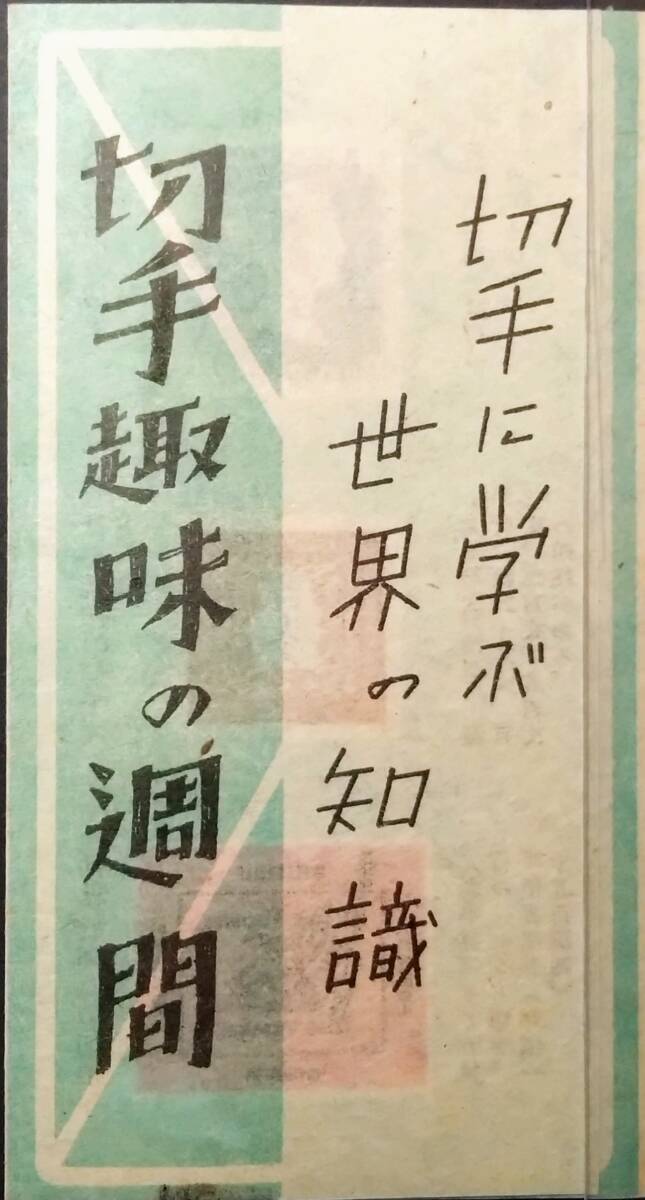 切手に学ぶ
世界の知識
切手趣味の週間